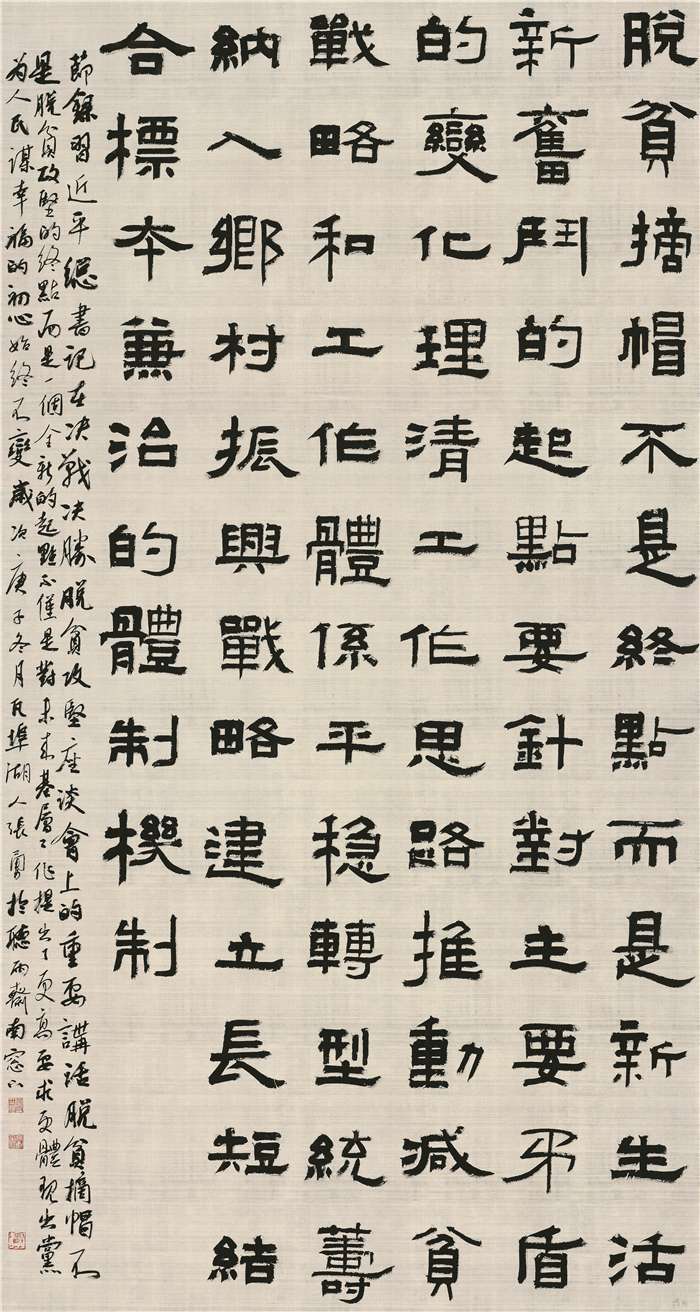 脫貧摘帽不是終點而是新生活
新奮鬥的起點要針對主要矛盾
的變化理清工作思路推動減貧
戰略和工作體係平穩轉型統籌
納入鄉村振興戰略建立長短結
合標本兼治的體制機制
節錄習近平總書記在决戰决勝脫貧攻堅座談會上的重要講話脫貧摘帽不
是脫貧攻堅的終點而是一個全新的起點不僅是對未來基層工作提出了更高要求更體現出黨
为人民謀幸福的初心始終不變歲次庚子冬月瓦埠湖人張勇於聽雨齋南窗下